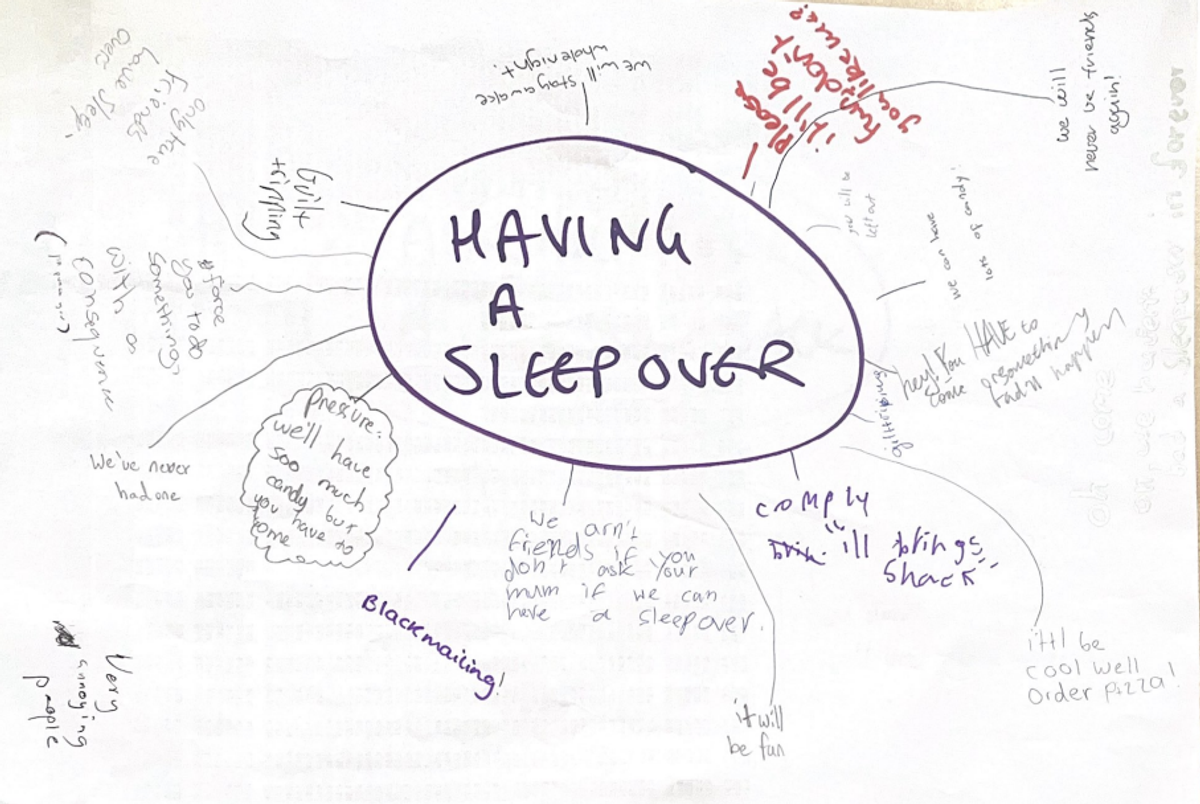 HAVING
A
SLEEPOVER
we will
stay awake
whole night.
Please
it'll be
fun don't
you like wee?
we will
never be friends
again!
you will be
left out
we can have
lots of candy!
hey! You HAVE to
come or something
bad'll happen
comply
ill brings
snack
itll be
cool well
order pizza!
it will
be fun
we arn't
friends if you
don't ask your
mum if we can
have a sleepover.
Blackmailing!
pressure:
we'll have
soo much
candy but
you have no
home
We've never
had one
force
you to do
somethings
with a
consequence
Guilt
tripping
only true
friends
have sleep
over
Very
annoying
people